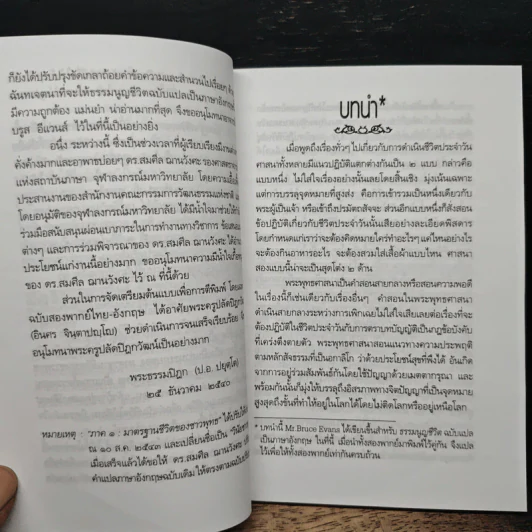 ก็ยังได้ปรับปรุงขัดเกลาถ้อยคำข้อความและสำนวนไปเรื่อยๆ ด้วย
ฉันทเจตนาที่จะให้ธรรมนูญชีวิตฉบับแปลเป็นภาษาอังกฤษ
มีความถูกต้อง แม่นยำ น่าอ่านมากที่สุด จึงขออนุโมทนา
บรูส อีแวนส์ ไว้ในที่นี้เป็นอย่างยิ่ง
อนึ่ง ระหว่างนี้ ซึ่งเป็นช่วงเวลาที่ผู้เรียบเรียงมีงาน
คั่งค้างมากและอาพาธบ่อยๆ ดร.สมศีล ฌานวังศะ รองศาสตราจารย์
แห่งสถาบันภาษา จุฬาลงกรณ์มหาวิทยาลัย โดยความ
ประสานงานของสำนักงานคณะกรรมการวัฒนธรรมแห่งชาติ
โดยอนุมัติของจุฬาลงกรณ์มหาวิทยาลัย ได้มีน้ำใจมาช่วย
ร่วมมือสนับสนุนผ่อนเบาภาระในการทำงานทางวิชาการ
ต่างๆ และการร่วมพิจารณาของ ดร.สมศีล ฌานวังศะ ได้
ประโยชน์แก่งานนี้อย่างมาก ขออนุโมทนาความมีน้ำใจเกื้อ
ของ ดร.สมศีล ฌานวังศะ ไว้ ณ ที่นี้ด้วย
ส่วนในการจัดเตรียมต้นแบบเพื่อการตีพิมพ์
ฉบับสองพากย์ไทย-อังกฤษ ได้อาศัยพระครูปลัดปิฎกวัฒน์
(อินศร จินฺตาปญฺโญ) ช่วยดำเนินการจนเสร็จเรียบร้อย
อนุโมทนาพระครูปลัดปิฎกวัฒน์เป็นอย่างมาก
พระธรรมปิฎก (ป.อ. ปยุตฺโต)
๒๕ ธันวาคม ๒๕๔๐
หมายเหตุ: "ภาค ๑ : มาตรฐานชีวิตของชาวพุทธ" ได้ปรับ
ณ ๑๐ ส.ค. ๒๕๔๓ และเปลี่ยนชื่อเป็น
เมื่อเสร็จแล้วได้ขอให้ ดร.สมศีล ฌานวังศะ
คำแปลภาษาอังกฤษฉบับเดิม ให้ตรงตามฉบับ
บทนำ*
เมื่อพูดถึงเรื่องทั่วๆ ไปเกี่ยวกับการดำเนินชีวิตประจำวัน
ศาสนาทั้งหลายมีแนวปฏิบัติแตกต่างกันเป็น ๒ แบบ กล่าวคือ
แบบหนึ่ง ไม่ใส่ใจเรื่องอย่างนั้นเลยโดยสิ้นเชิง มุ่งเน้นเฉพาะ
แต่การบรรลุจุดหมายที่สูงส่ง คือการเข้ารวมเป็นหนึ่งเดียวกับ
พระผู้เป็นเจ้า หรือเข้าถึงปรมัตถสัจจะ ส่วนอีกแบบหนึ่งก็สั่งสอน
ข้อปฏิบัติเกี่ยวกับชีวิตประจำวันนั้นเสียอย่างละเอียดพิสดาร
โดยกำหนดแก่เราว่าจะต้องคิดหมายใคร่ทำอะไรๆ แค่ไหนอย่างไร
จะต้องกินอาหารอะไร จะต้องสวมใส่เสื้อผ้าแบบไหน ศาสนา
สองแบบนั้นน่าจะเป็นสุดโต่ง ๒ ด้าน
พระพุทธศาสนาเป็นคำสอนสายกลางหรือสอนความพอดี
ในเรื่องนี้ก็เช่นเดียวกับเรื่องอื่นๆ คำสอนในพระพุทธศาสนา
ดำเนินสายกลางระหว่างการเพิกเฉยไม่ใส่ใจเสียเลยต่อเรื่องที่จะ
ต้องปฏิบัติในชีวิตประจำวันกับการตราบทบัญญัติเป็นกฎข้อบังคับ
ที่เคร่งตึงตายตัว พระพุทธศาสนาสอนแนวทางความประพฤติ
ตามหลักสัจธรรมที่เป็นอกาลิโก ว่าด้วยประโยชน์สุขที่พึงได้ อันเกิด
จากการอยู่ร่วมสัมพันธ์กันโดยใช้ปัญญาด้วยเมตตากรุณา และ
พร้อมกันนั้นก็มุ่งให้บรรลุถึงอิสรภาพทางจิตปัญญาที่เป็นจุดหมาย
สูงสุดถึงขั้นที่ทำให้อยู่ในโลกได้โดยไม่ติดโลกหรืออยู่เหนือโลก
* บทนำนี้ Mr.Bruce Evans ได้เขียนขึ้นสำหรับ ธรรมนูญชีวิต ฉบับแปล
เป็นภาษาอังกฤษ ในที่นี้ เมื่อนำทั้งสองพากย์มาพิมพ์ไว้คู่กัน จึงแปล
ไว้เพื่อให้ทั้งสองพากย์เท่ากันครบถ้วน